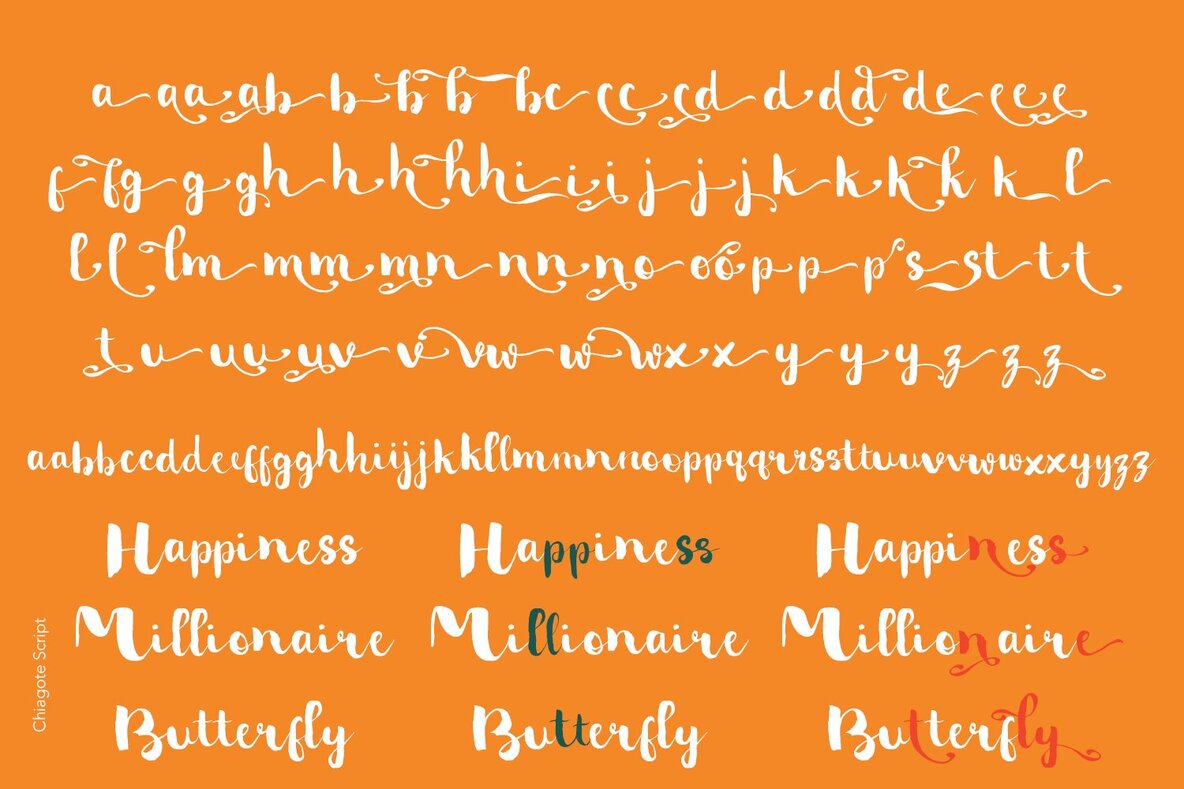 a aa ab b b b bc cc cd d dd de ee e
f fg g gh h h hhi i i j j j k k k k k l
l l lm mm mn nn no oo p p p s st t t
t u uu uv v vw w wx x y y y z z z
aabbccddeeffgghhiijjkkllmmnnooppqqrrssttuuvvwwxxyyzz
Happiness Happiness Happiness
Millionaire Millionaire Millionaire
Butterfly Butterfly Butterfly
Chiagote Script